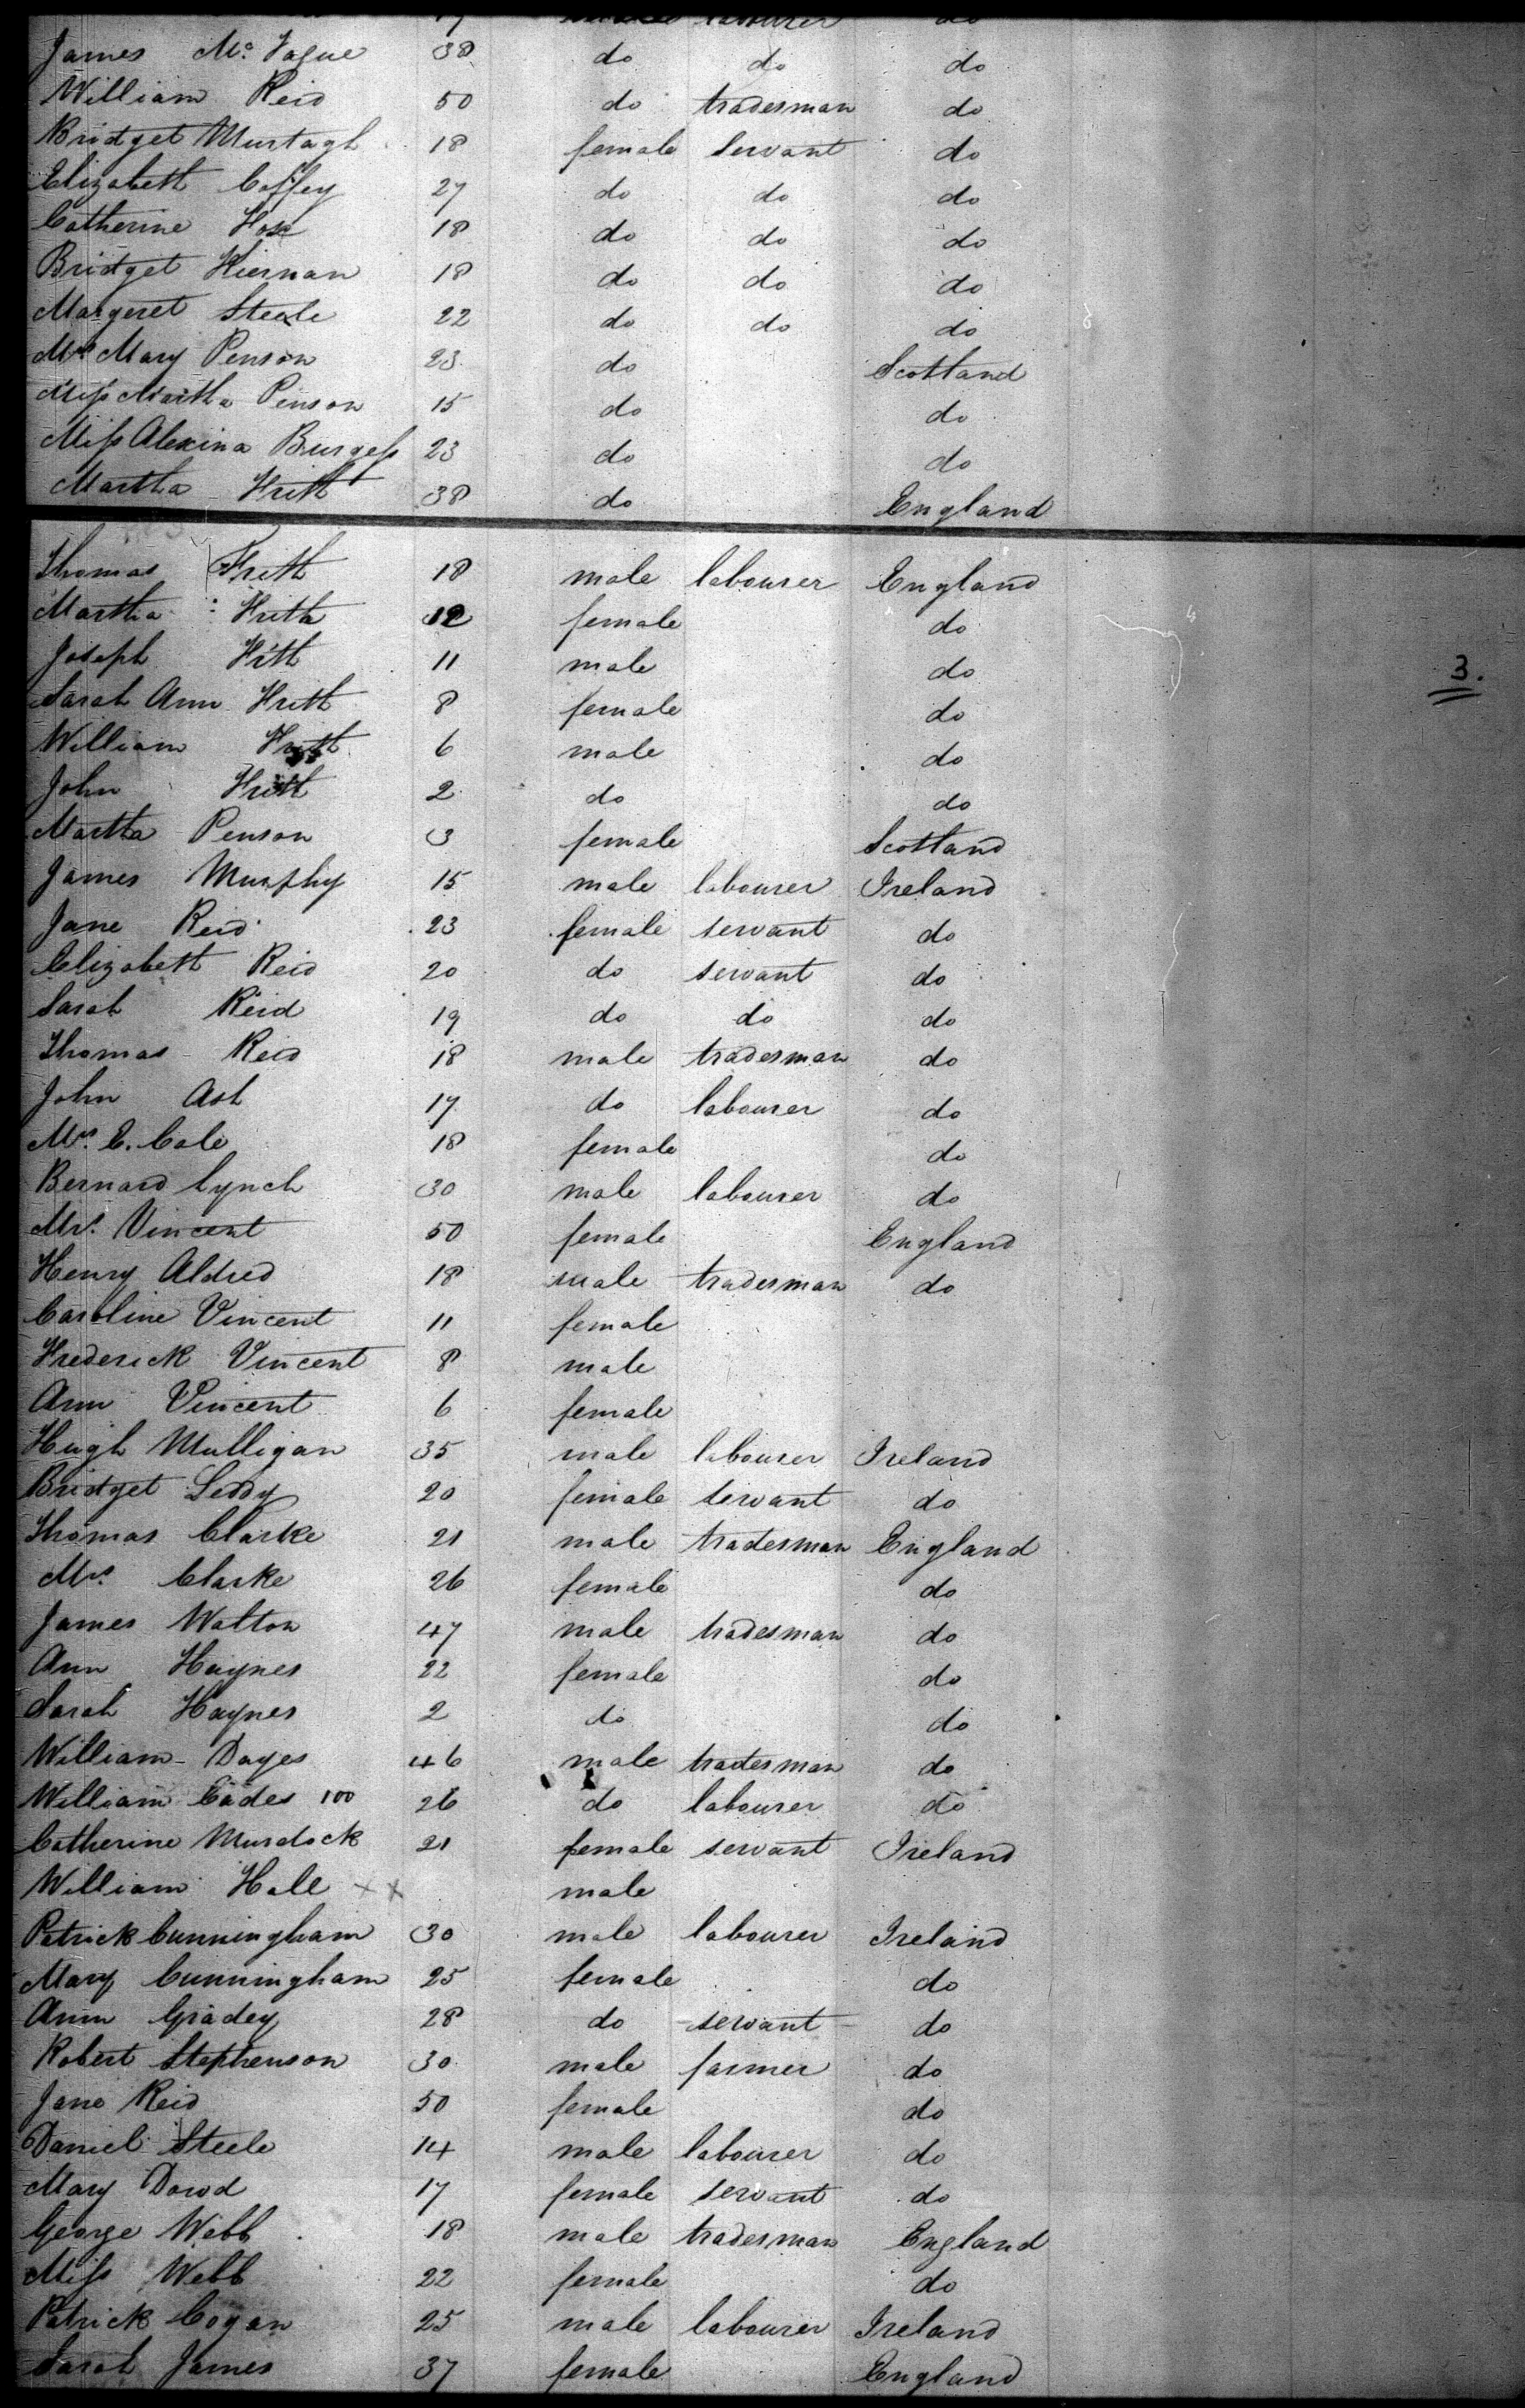 labourer do
James Mc Vague 38 do do do
William Reid 50 do tradesman do
Bridget Murtagh 18 female servant do
Elizabeth Coffey 27 do do do
Catherine 18 do do do
Bridget Kiernan 18 do do do
Margeret Steele 22 do do do
Mrs Mary Penson 23 do Scotland
Miss Martha Penson 15 do do
Miss Alexina Burgess 23 do do
Martha Frith 38 do England
Thomas Frith 18 male labourer England
Martha Frith 12 female do
Joseph Fith 11 male do
Sarah Ann Frith 8 female do
William Frith 6 male do
John Frith 2 do do
Martha Penson 3 female Scotland
3.
James Murphy 15 male labourer Ireland
Jane Reid 23 female servant do
Elizabeth Reid 20 do servant do
Sarah Reid 19 do do do
Thomas Reid 18 male tradesman do
John Ash 17 do labourer do
Mrs. E. Cole 18 female do
Bernard Lynch 30 male labourer do
Mrs. Vincent 50 female England
Henry Aldred 18 male tradesman do
Caroline Vincent 11 female
Frederick Vincent 8 male
Ann Vincent 6 female
Hugh Mulligan 35 male labourer Ireland
Bridget Leddy 20 female servant do
Thomas Clarke 21 male tradesman England
Mrs. Clarke 26 female do
James Walton 47 male tradesman do
Ann Haynes 22 female do
Sarah Haynes 2 do do
William Dayes 46 male tradesman do
William Eades 100 26 do labourer do
Catherine Murdock 21 female servant Ireland
William Hall xx male
Patrick Cunningham 30 male labourer Ireland
Mary Cunningham 25 female do
Ann Gradey 28 do servant do
Robert Stephenson 30 male farmer do
Jane Reid 50 female do
Daniel Steele 14 male labourer do
Mary Dowd 17 female servant do
George Webb 18 male tradesman England
Miss Webb 22 female do
Patrick Cogan 25 male labourer Ireland
Sarah James 37 female England